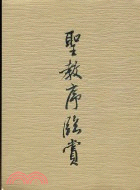 聖教序臨賞